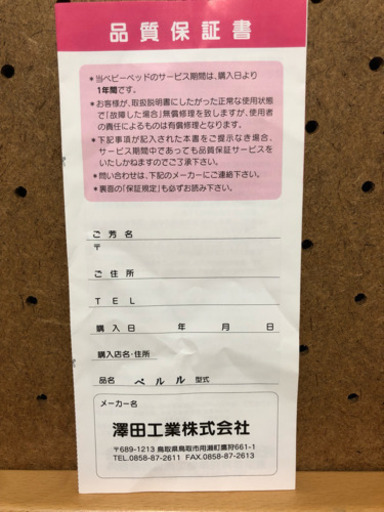 品質保証書
●当ベビーベッドのサービス期間は、購入日より
1年間です。
●お客様が、取扱説明書にしたがった正常な使用状態
で「故障した場合」無償修理を致しますが、使用者
の責任によるものは有償修理となります。
●下記事項が記入された本書をご提示なき場合、
サービス期間中であっても品質保証サービスを
いたしかねますのでご了承下さい。
●問い合わせは、下記のメーカーにご連絡下さい。
●裏面の「保証規定」も必ずお読み下さい。
ご芳名
〒
ご住所
TEL
購入日 年 月 日
購入店名・住所
品名 ベルル 型式
メーカー名
澤田工業株式会社
〒689-1213 鳥取県鳥取市用瀬町鷹狩661-1
TEL.0858-87-2611 FAX.0858-87-2613